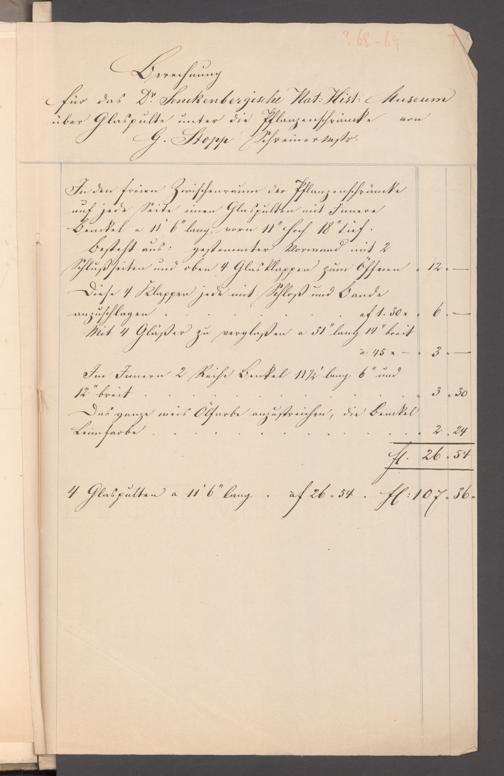 ? 68-69
Berechnung
für das Dr. Senckenbergische Nat: Hist: Museum
über Glaspulte unter die Pflanzenschränke von
G. Stopp Schreinermstr.
In den freien Zwischenraum der Pflanzenschränke
auf jede Seite einen Glaspulten mit Innere
Benckel a 11' 6" lang, vorn 11" hoch 18" tief.
Besteht aus: gestemmter Vorwand mit 2
Schlußseiten und oben 4 Glasklappen zum Öffnen " 12 " —
Diese 4 Klappen jede mit Schloß und Bande
anzuschlagen . . . . . . af 1.30 " 6 . —
Mit 4 Gläßer zu verglaßen a 31" lang 14" breit
a 45 x — " 3 . —
Im Innern 2 Reihe Benckel 11½' lang 6" und
12" breit . . . . . . . . . " 3 . 30
Das ganze weis Ölfarbe anzustreichen, die Benckel
Leimfarbe . . . . . . . . . " 2 . 24
fl. 26 . 54
4 Glaspulten a 11' 6" lang . af 26.54 . fl: 107 . 36